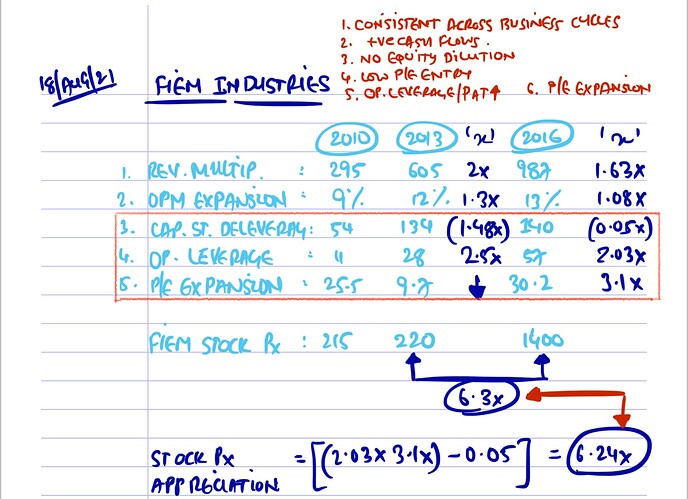 1. CONSISTENT ACROSS BUSINESS CYCLES
2. +VE CASH FLOWS.
3. NO EQUITY DILUTION
4. LOW P/E ENTRY
5. OP. LEVERAGE/PAT↑ 6. P/E EXPANSION
18/AUG/21 FIEM INDUSTRIES
2010 2013 'x' 2016 'x'
1. REV. MULTIP. : 295 605 2x 987 1.63x
2. OPM EXPANSION : 9% 12% 1.3x 13% 1.08x
3. CAP. ST. DELEVERAG: 54 134 (1.48x) 140 (0.05x)
4. OP. LEVERAGE : 11 28 2.5x 57 2.03x
5. P/E EXPANSION : 25.5 9.7 ↓ 30.2 3.1x
FIEM STOCK Px : 215 220 1400
6.3x
STOCK Px = [(2.03x 3.1x) - 0.05] = 6.24x
APPRECIATION